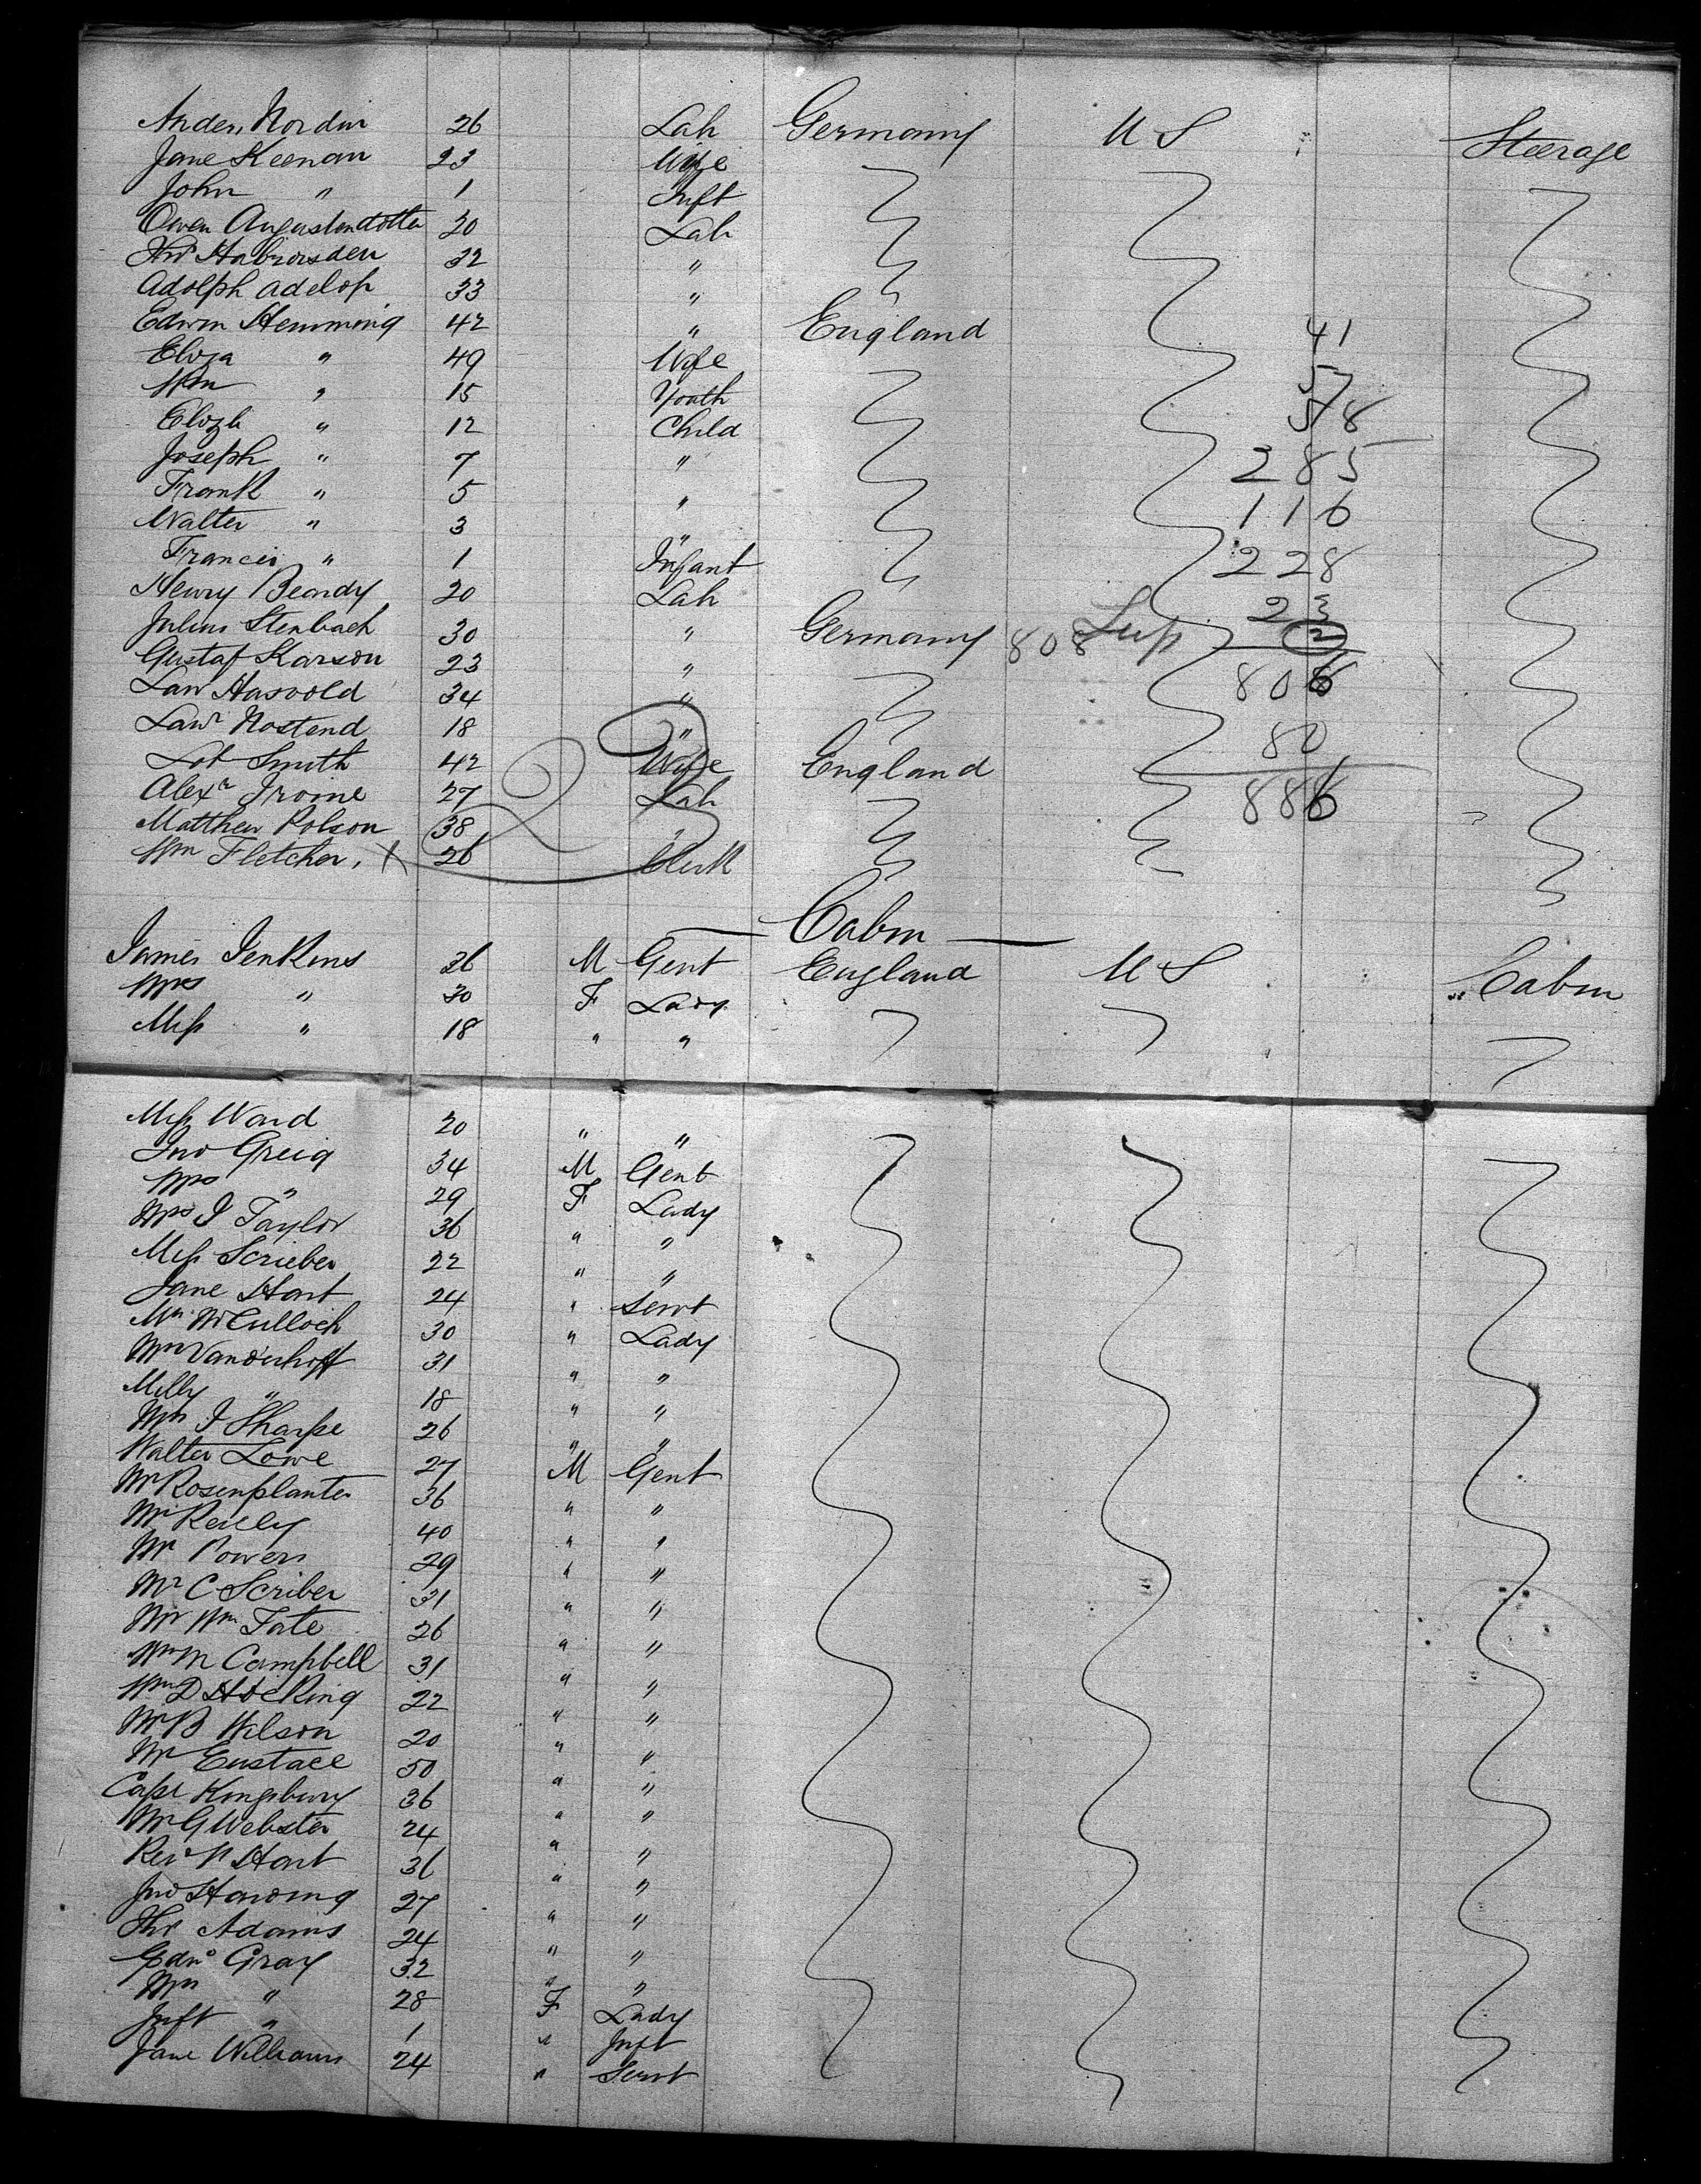 Anders Nordin 26 Lab Germany U S Steerage
Jane Keenan 23 Wife
John " 1 Inft
Owen Augustendotter 20 Lab
Thos 32 "
Adolph Adelop 33 "
Edwin Hemming 42 " England
Eliza " 49 Wife 41
Wm " 15 Youth 57
Elizh " 12 Child 58
Joseph " 7 " 285
Frank " 5 " 116
Walter " 3 "
Francis " 1 Infant 228
Henry Beardy 20 Lab 23
Julius Stenbach 30 " Germany 808 Sup 2
Gustaf Karson 23 " 806
Law Hasvold 34 "
Lawr Nostend 18 " 80
Smith 42 Wife England
Alexr Irvine 27 Lab 886
Matthew Robson 38 "
Wm Fletcher. X 26 Clerk 23
— Cabin —
James Jenkins 26 M Gent England U S Cabin
Mrs " 30 F Lady
Miss " 18 " "
Miss Ward 20 " "
Jno Greig 34 M Gent
Mrs " 29 F Lady
Mrs J Taylor 36 " "
Miss Scrieber 22 " "
Jane Hart 24 " Servt
Mrs McCulloch 30 " Lady
Mrs Vanderhoff 31 " "
Milly " 18 " "
Mrs J Sharpe 26 " "
Walter Lowe 27 M Gent
Mr Rosenplanter 36 " "
Mr Reilly 40 " "
Mr Powers 29 " "
Mr C Scriber 31 " "
Mr Wm Tate 26 " "
Wm N Campbell 31 " "
Wm D Hocking 22 " "
Mr B Wilson 20 " "
Mr Eustace 50 " "
Capt Kingsbury 36 " "
Mr G Webster 24 " "
Revd Hart 36 " "
Jno Harding 27 " "
Thos Adams 24 " "
Edwd Gray 32 " "
Mrs " 28 F Lady
Inft " 1 " Inft
Jane Williams 24 " Servt